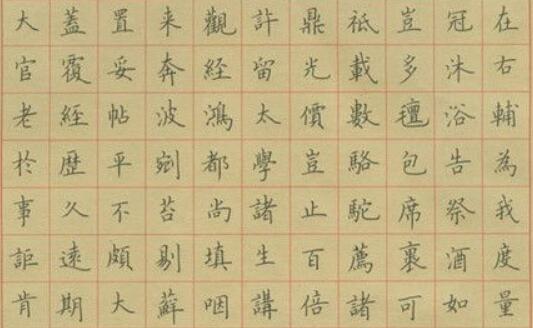 在右輔為我度量
冠沐浴告祭酒如
豈多氈包席裹可
祇載數駱駝薦諸
鼎光價豈止百倍
許留太學諸生講
觀經鴻都尚填咽
来奔波剜苔剔蘚
置妥帖平不頗大
蓋覆經歷久遠期
大官老於事詎肯